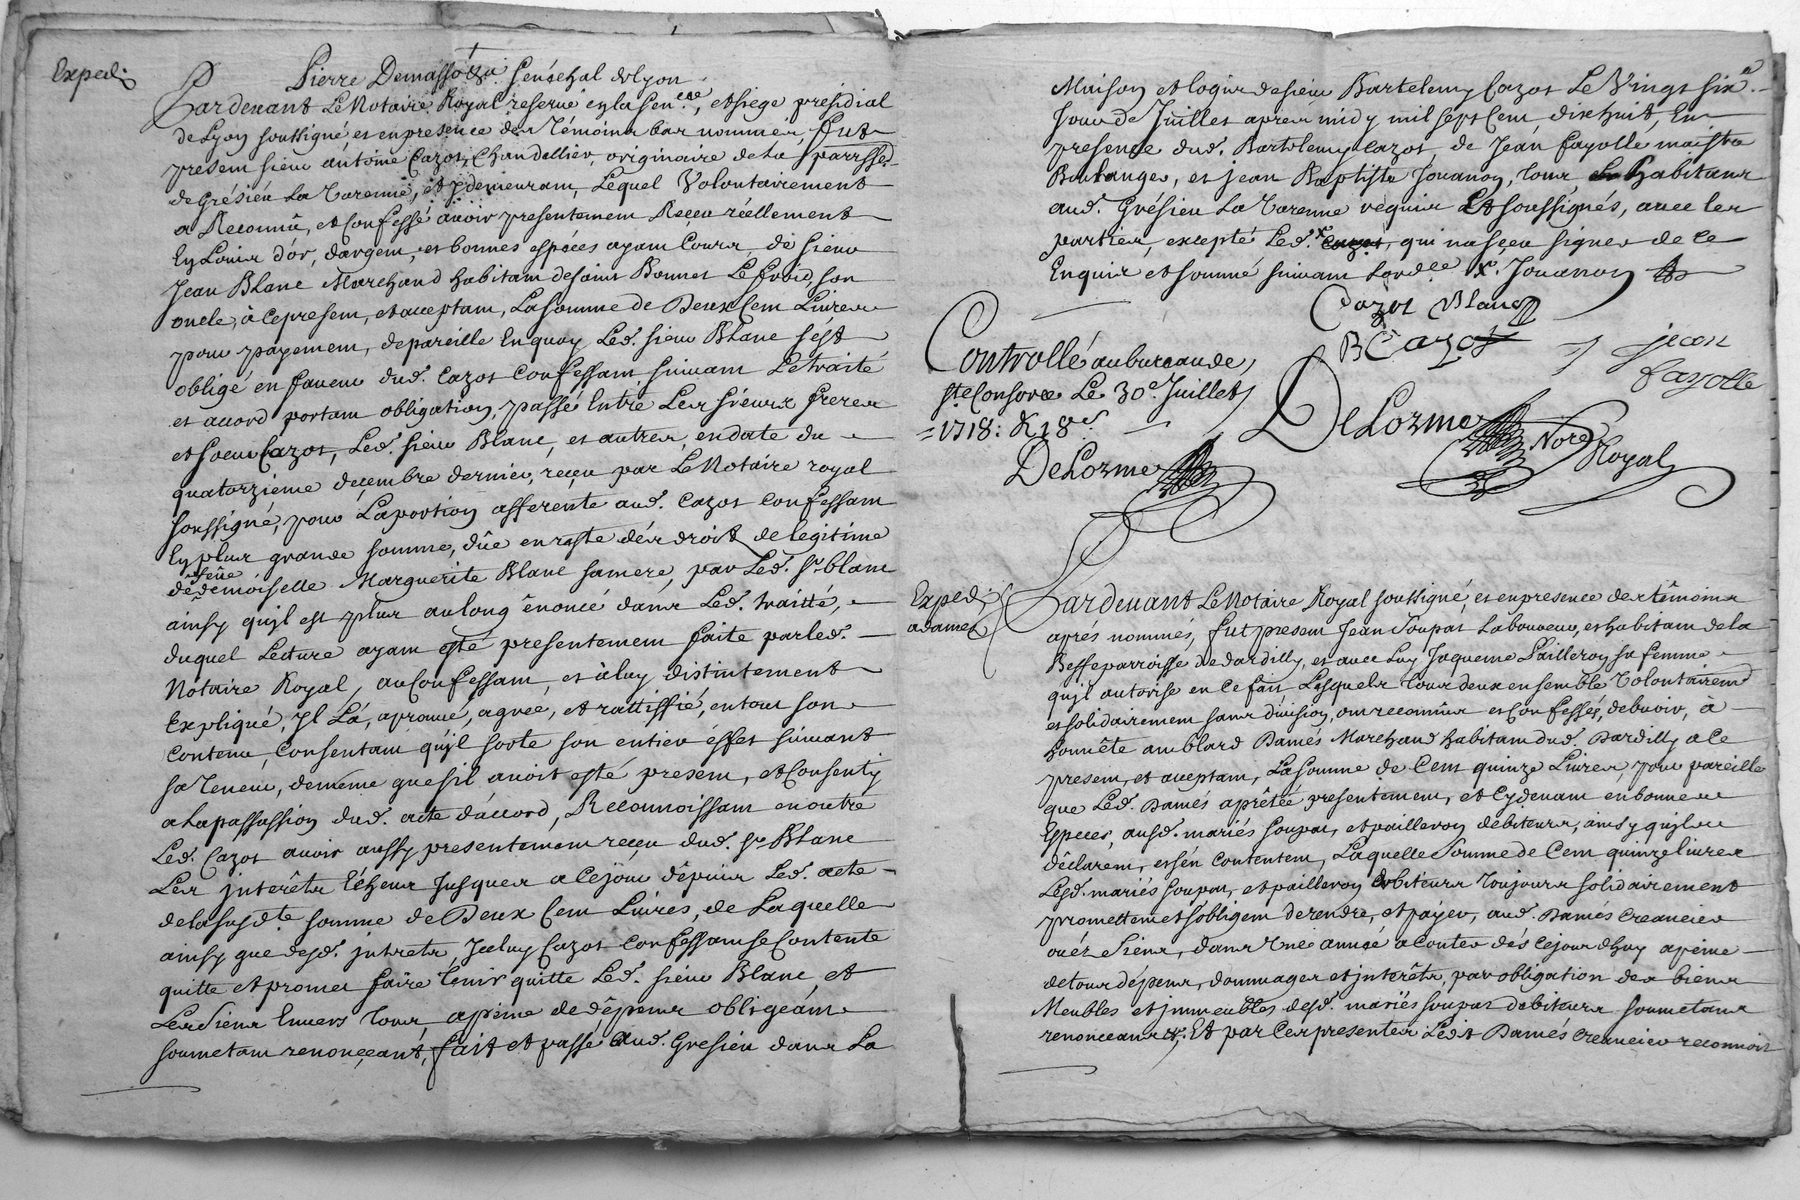 Exped:
Pierre Demasso &a. Senéchal de Lyon
Pardevant Le Notaire Royal reservé en la Sen.cée, et siege presidial
de Lyon soussigné, et en presence des Témoins bas nommés, fut
present sieur antoine Cazot, Chandellier, originaire de la parrisse
de Grésieu La Varenne, et y demeurant, Lequel Volontairement
a Reconnû, et Confessé avoir presentement Receu réellement
En Louis d'or, d'argent, et bonnes espéces ayant Cours, de sieur
Jean Blanc Marchand habitant de saint Bonnet Le froid, son
oncle, à ce present, et acceptant, La somme de Deux Cent Livres
pour payement, de pareille En quoy Led. sieur Blanc s'est
obligé en faveur dud. Cazot Confessant suivant Le traité
et accord portant obligation, passé Entre Les sieurs freres
et soeur Cazot, Led. sieur Blanc, et autres, en date du
quatorzieme decembre dernier, reçeu par Le Notaire royal
soussigné, pour La portion afferente aud. Cazot Confessant
En plus grande somme, dûe en reste dés droits de legitime
de feüe
demoiselle Marguerite Blanc sa mere, par Led. Sr. blanc
ainsy qu'jl est plus au long énoncé dans Led. traitté,
duquel Lecture ayant esté presentement faite par led.
Notaire Royal, au Confessant, et à luy distintement
Expliqué, Jl L'á, aprouvé, agreé, et rattiffié, en tout son
Contenu, Consentant qu'jl sorte son entier éffet suivant
sa Teneur, de même que s'il avoit esté present, et Consenty
a La passassion dud. acte d'accord, Reconnoissant en outre
Led. Cazot avoir aussy presentement reçeu dud. Sr Blanc
Les jnterêts Echeus Jusques a Ce jour dépuis Led. acte
de la susd.te somme de Deux Cent Livres, de Laquelle
ainsy que desd. jntrets, Jceluy Cazot Confessant se Contente
quitte et promet faire tenir quitte Led. sieur Blanc, et
Les siens Envers tous, a peine de dépens obligeant
soumetant renonçeant, fait et passé Aud. Gresieu dans La
Maison et logis de sieur Bartelemy Cazot Le Vingt six.e
Jour de Juillet aprés midy mil sept Cent dixhuit, En
presence dud. Bartelemy Cazot de Jean fayolle maistre
Boulanger, et jean Baptiste Jouanon, tous habitans
aud. Grésieu La Varenne requis Et soussignés, avec les
parties, excepté Led. x Cazot, qui n'a sçeu signer de ce
Enquis et sommé suivant Lord.ce x. Jouanon
Cazot Blanc
B Cazot
jean
fayolle
Controllé au bureau de
ste Consorce Le 30e. Juillet
1718: R 18s.
DeLorme
DeLorme Nore. Royal
Exped
a damés
Pardevant Le Notaire Royal soussigné, et en presence des témoins
aprés nommés, fut present Jean Soupat Laboureur, et habitant de la
Besse parroisse de dardilly, et avec Luy Jaqueme Pailleron sa femme
qu'jl autorise en ce fait, Lesquels Tous deux ensemble Volontairemt
et solidairement sans division, ont reconnûs et Confessés, debvoir, a
honnête amblard Damés Marchand habitant dud. Dardilly a Ce
present, et acceptant, La somme de Cent quinze Livres, pour pareille
que Led. Damés a prêtéé presentement, et Cydevant en bonnes
Especes, ausd. mariés soupat, et pailleron debiteurs, ainsy qu'jls
déclarent, et s'en Contentent, Laquelle somme de Cent quinze livres
Lesd. mariés soupat, et pailleron debiteurs Toujours solidairement
promettent et s'obligent de rendre, et payer, aud. Damés Creancier
ou és siens, dans Une année a Conter dés ce jourdhuy a peine
de tous dépens, dommages et jnterêts, par obligation des biens
Meubles et jmmeubles desd. mariés soupat debiteurs soumetans
renonceans &. Et par Ces presentes Ledit Damés Creancier reconnoit